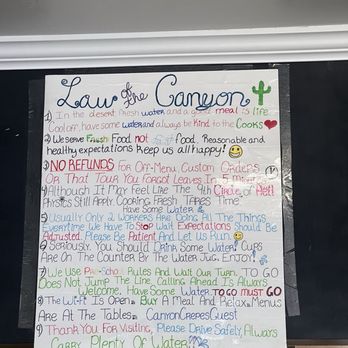 Law of the Canyon
1) In the desert fresh water and a good meal is life.
Cool off, have some water and always be Kind to the Cooks
2) We serve Fresh Food not fast food. Reasonable and
healthy expectations Keep us all happy!
3) NO REFUNDS For Off-Menu, Custom Orders
Or That Tour You Forgot Leaves In 5 Minutes
4) Although It May Feel Like The 9th Circle of Hell
Physics Still Apply Cooking Fresh Takes Time.
Have Some Water
5) Usually Only 2 Workers Are Doing All The Things
Everytime We Have To Stop Wait Expectations Should Be
Adjusted. Please Be Patient And Let Us Roll
6) Seriously You Should Drink Some Water! Cups
Are On The Counter By The Water Jug. Enjoy!
7) We Use Pre-School Rules And Wait Our Turn. TO GO
Does Not Jump The Line, Calling Ahead Is Always
Welcome, Have Some Water TO GO MUST GO
8) The Wi-Fi Is Open. Buy A Meal And Relax. Menus
Are At The Tables. CanyonCrepesGuest
9) Thank You For Visiting, Please Drive Safely Always
Carry Plenty Of Water